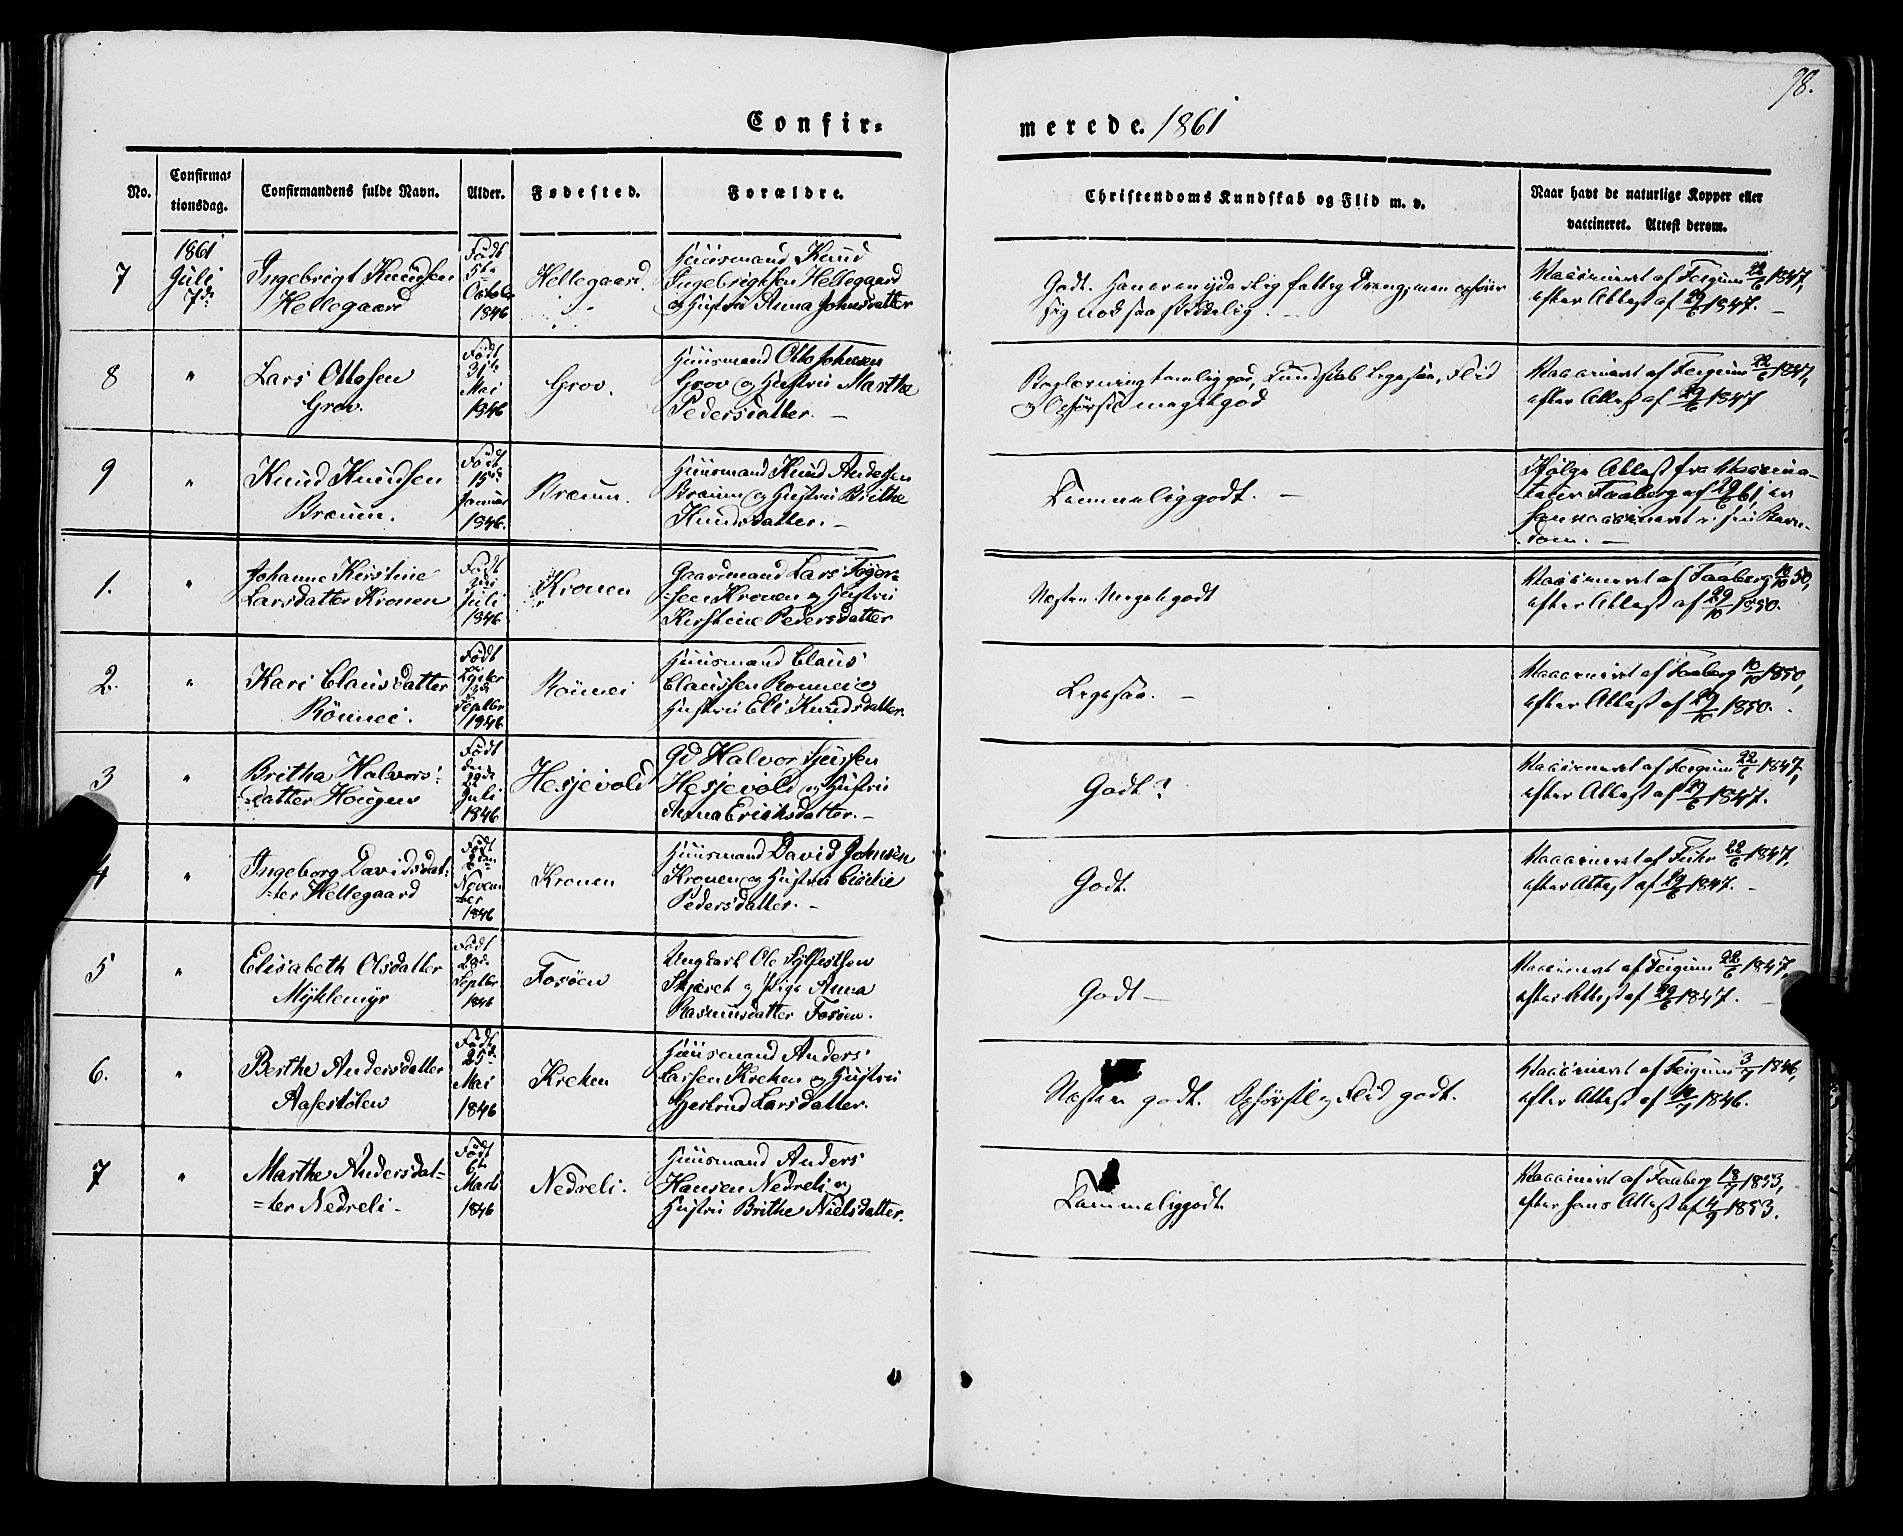 78.
Confir-
merede. 1861
No.
Confirma-
tionsdag.
Confirmandens fulde Navn.
Alder.
Fødested.
Forældre.
Christendoms Kundskab og Flid m. v.
Naar havt de naturlige Kopper eller
vaccineret. Attest derom.
7
1861
Juli
7de
Ingebrigt Knudsen
Hellegaard
Født
5te
October
1846
Hellegaard.
Huusmand Knud
Ingebrigtsen Hellegaard
og Hustru Anna Johnsdatter
Godt. Han er en fattig Dreng, men opfører
sig
Vaccineret af Feigum 22/6 1847,
efter Attest af 29/6 1847.
8
"
Lars Ottosen
Grov.
Født
31te
Mai
1846
Grov.
Huusmand Otto Johnsen
Grov og Hustru Marthe
Pedersdatter. —
temlig god, Kundskab ligesaa, Flid
og Opførsel meget god
Vaccineret af Feigum 22/6 1847,
efter Attest af 29/6 1847
9
"
Knud Knudsen
Bræum.
Født
15de
Januar
1846.
Bræum.
Huusmand Knud Andersen
Bræum og Hustru Brithe
Knudsdatter. —
Temmelig godt. —
Ifølge Attest fra Vaccina-
teur Faaberg af 29/6 61 er
han vaccineret i sin Barn-
dom. —
1.
"
Johanne Kirstine
Larsdatter Kronen
Født
Juli
1846
Kronen
Gaardmand Lars Töger-
sen Kronen og Hustru
Kirstine Pedersdatter
Næsten Meget godt
Vaccineret af Faaberg 50,
efter Attest af 29/10 1850.
2.
"
Kari Clausdatter
Rönnei.
Født
i Lyster
Septber
1846
Rönnei
Huusmand Claus
Claussen Rönnei og
Hustru Eli Knudsdatter.
Ligesaa. —
Vaccineret af Faaberg 10/10 1850,
efter Attest af 29/10 1850.
3
"
Britha Halvors-
datter Hougen
Født
den
29de
Juli
1846
Hesjevold
Gd Halvor Sjursen
Hesjevold og Hustru
Anna Erichsdatter. —
Godt?
Vaccineret af Feigum 22/6 1847,
efter Attest af 29/6 1847.
4
"
Ingeborg Davidsdat-
ter Hellegaard
Født
Novem-
ber
1846
Kronen
Huusmand David Johnsen
Kronen og Hustru Cicilie
Pedersdatter. —
Godt.
Vaccineret af Fuhr 22/6 1847,
efter Attest af 29/6 1847. —
5
"
Elisabeth Olsdatter
Myklemyr
Født
28de
Septber
1846
Fosøen
Ungkarl Ole Sylfestsen
Skjæret og Pige Anna
Rasmusdatter Fosøen.
Godt —
Vaccineret af Feigum 22/6 1847,
efter Attest af 29/6 1847. —
6.
"
Berthe Andersdatter
Aasestølen
Født
25de
Mai
1846
Kreken
Huusmand Anders
Larsen Kreken og Hustru
Gjertrud Larsdatter.
Næsten godt. Opførsel og Flid godt.
Vaccineret af Feigum 3/7 1846,
efter Attest af 1846.
7
"
Marthe Andersdat-
ter Nedreli.
Født
6te
Marts
1846
Nedreli.
Huusmand Anders
Hansen Nedreli og
Hustru Brithe Nielsdatter.
Temmelig godt.
Vaccineret af Faaberg 1853,
efter hans Attest af 4/9 1853.